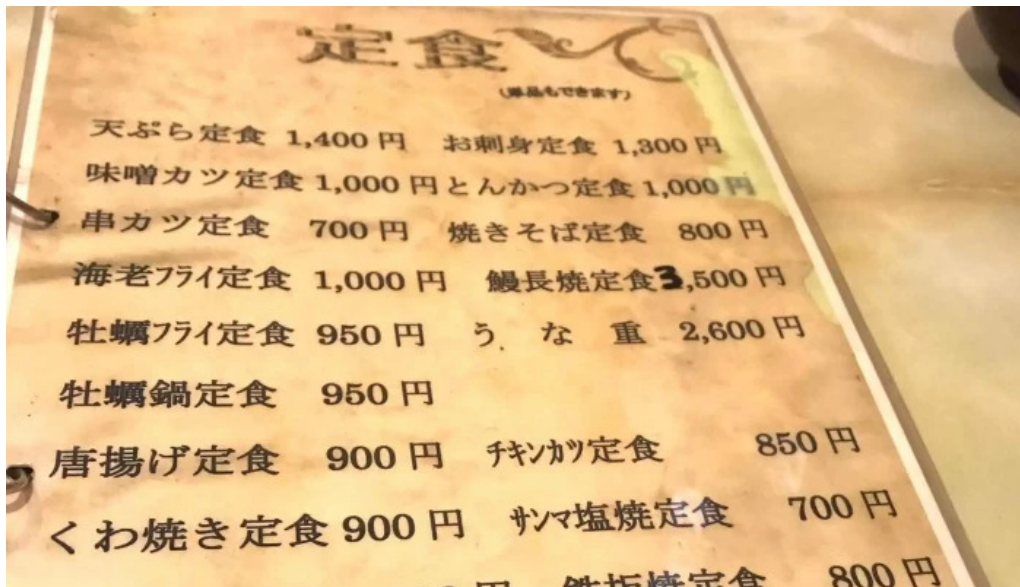 定食
(単品もできます)
天ぷら定食 1,400円 お刺身定食 1,300円
味噌カツ定食 1,000円 とんかつ定食 1,000円
串カツ定食 700円 焼きそば定食 800円
海老フライ定食 1,000円 鰻長焼定食 3,500円
牡蠣フライ定食 950円 うな重 2,600円
牡蠣鍋定食 950円
唐揚げ定食 900円 チキンカツ定食 850円
くわ焼き定食 900円 サンマ塩焼定食 700円
円 鉄板焼定食 800円